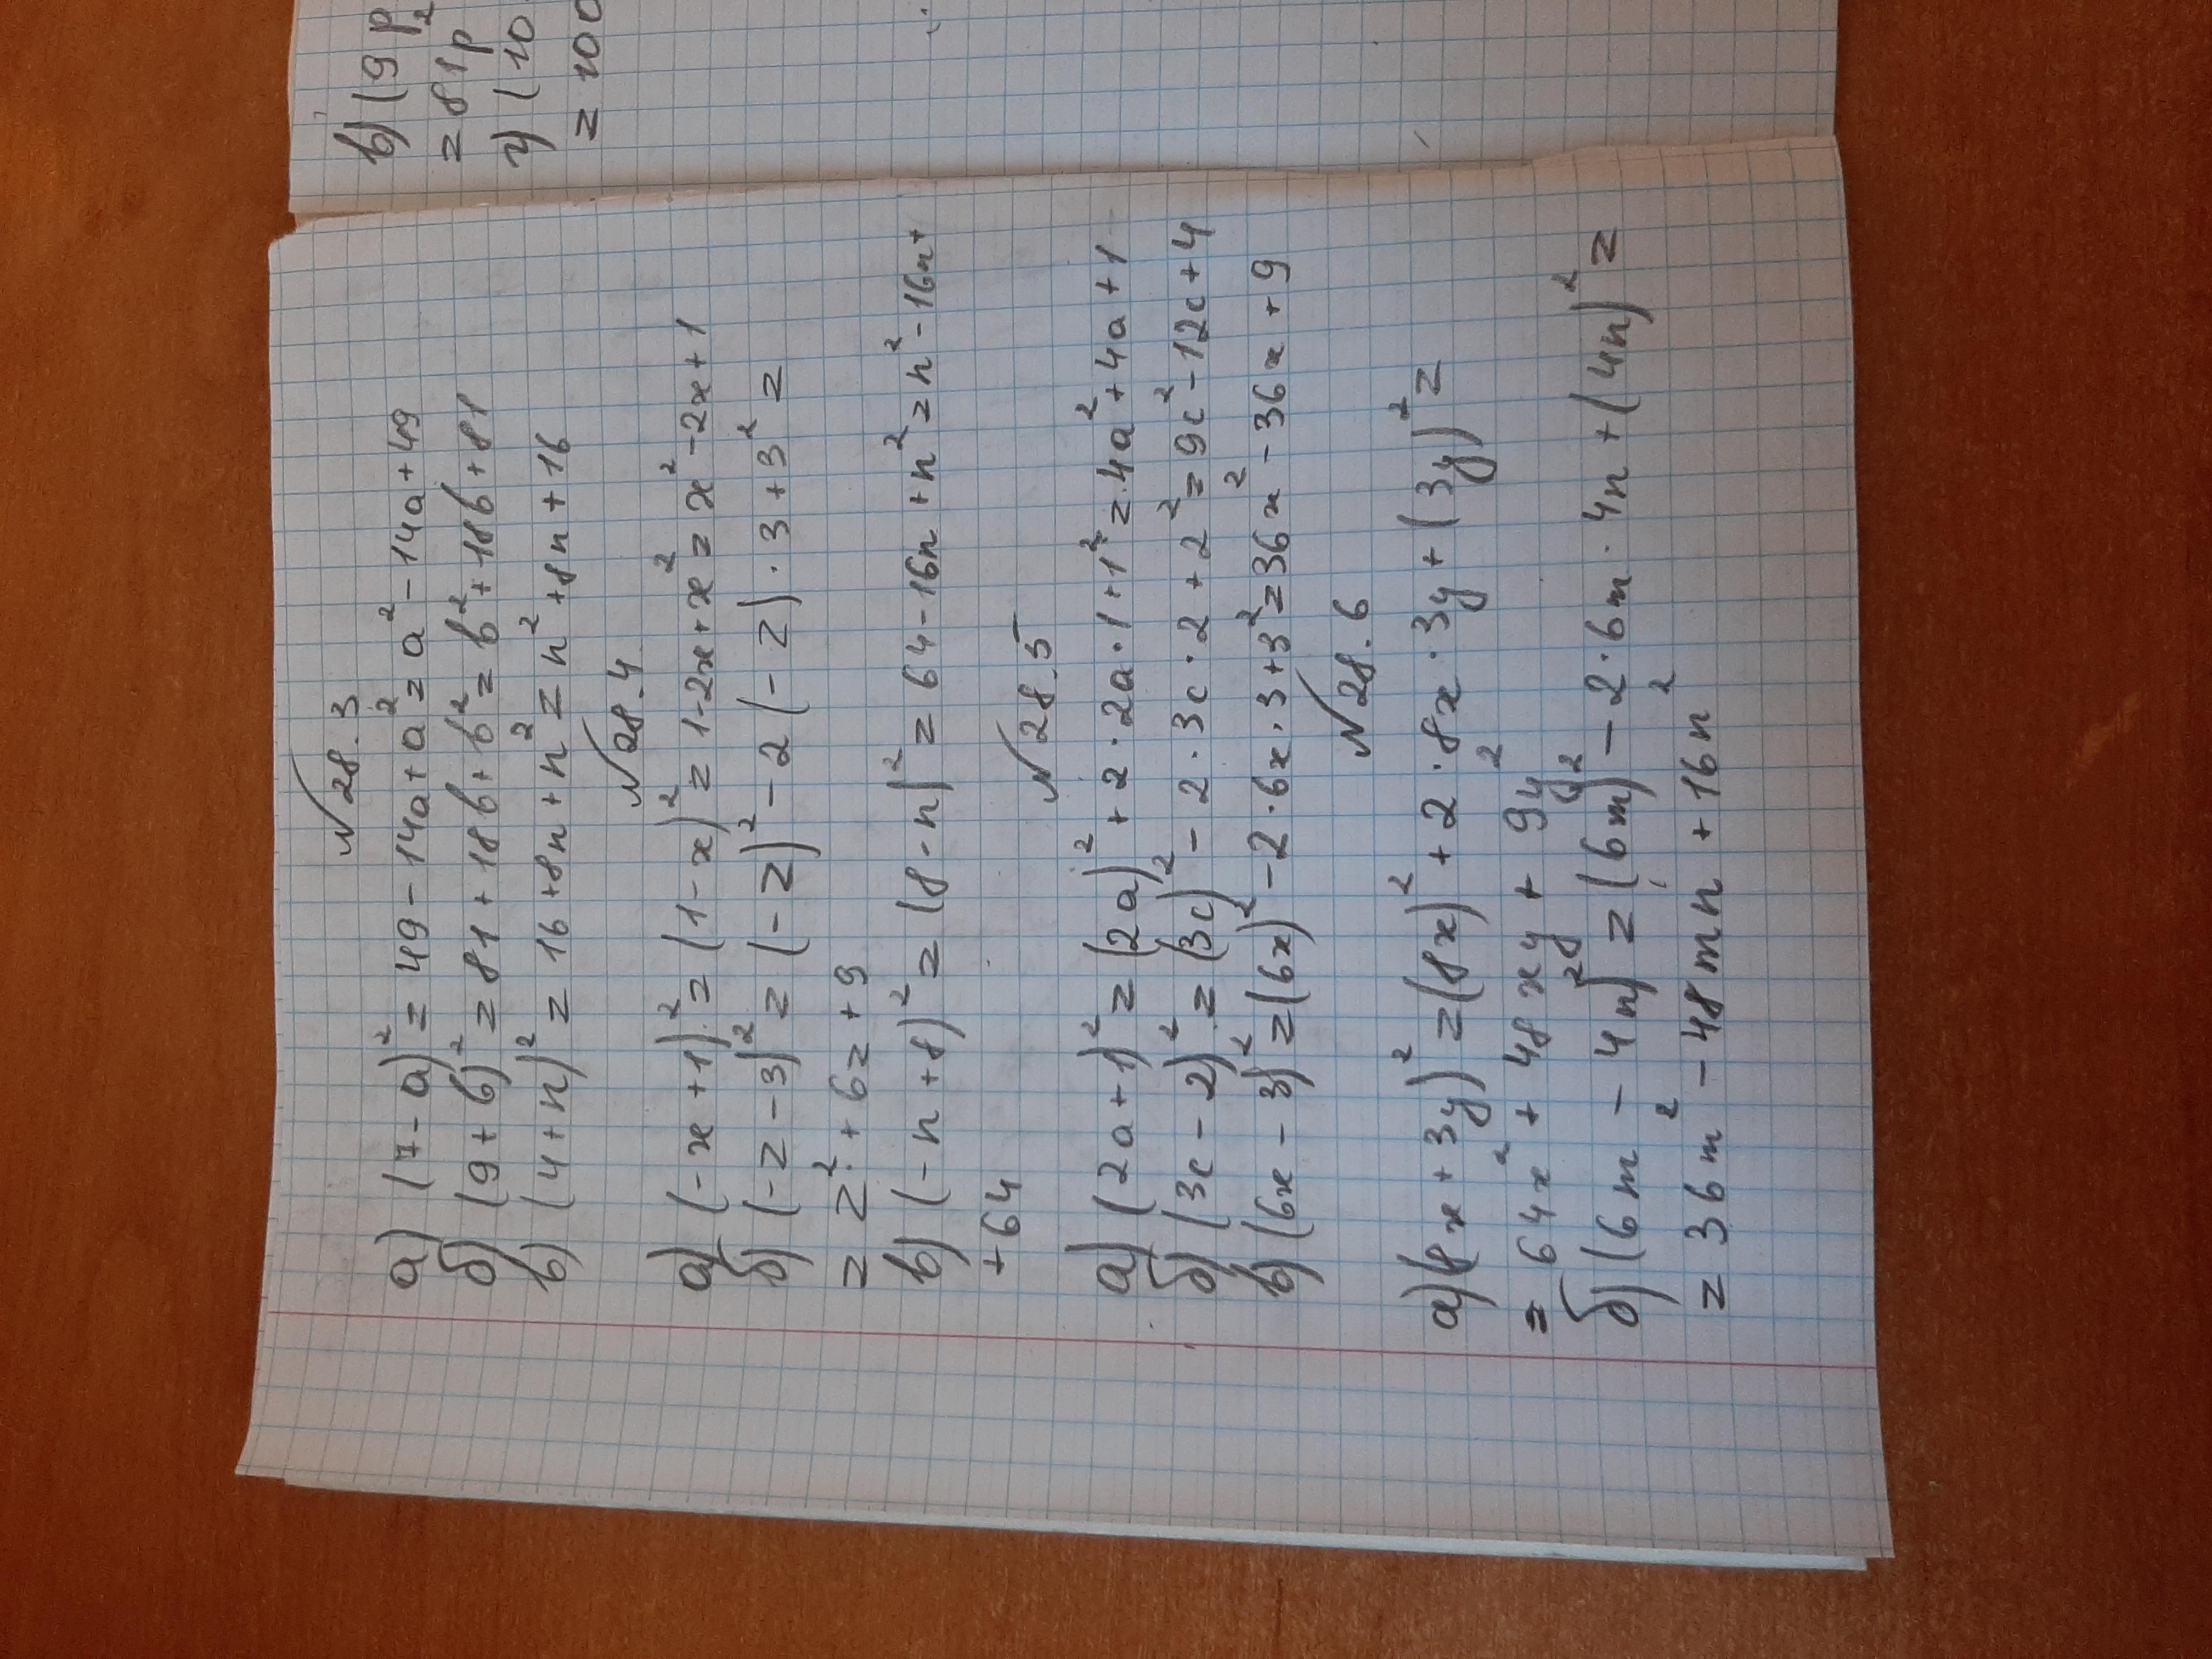 №28.3
а) (7-a)² = 49-14a+a² = a²-14a+49
б) (9+b)² = 81+18b+b² = b²+18b+81
в) (4+n)² = 16+8n+n² = n²+8n+16
№28.4
а) (-x+1)² = (1-x)² = 1-2x+x² = x²-2x+1
б) (-z-3)² = (-z)² - 2(-z)·3+3² =
= z²+6z+9
в) (-n+8)² = (8-n)² = 64-16n+n² = n²-16n+
+64
№28.5
а) (2a+1)² = (2a)²+2·2a·1+1² = 4a²+4a+1
б) (3c-2)² = (3c)²-2·3c·2+2² = 9c²-12c+4
в) (6x-3)² = (6x)²-2·6x·3+3² = 36x²-36x+9
№28.6
а) (8x+3y)² = (8x)²+2·8x·3y+(3y)² =
= 64x²+48xy+9y²
б) (6m-4n)² = (6m)²-2·6m·4n+(4n)² =
= 36m²-48mn+16n²
в) (9p
= 81p²
г) (10
= 100